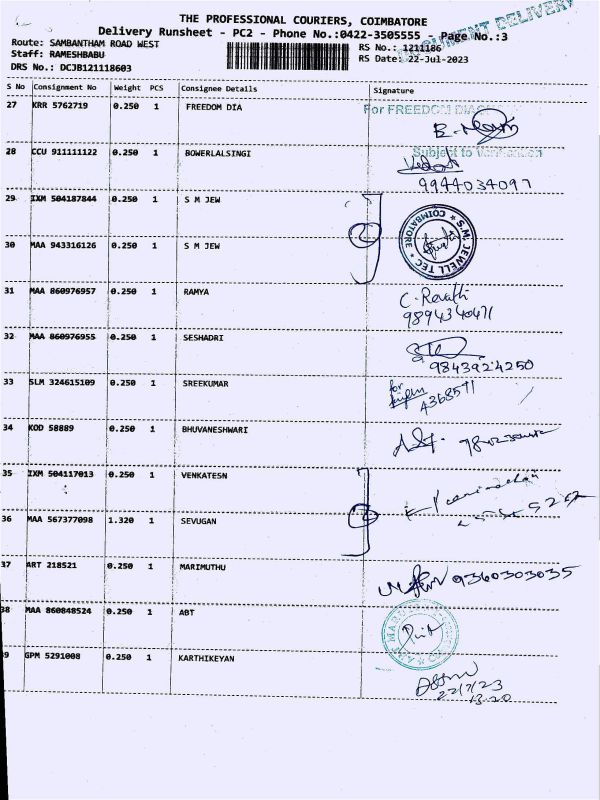 THE PROFESSIONAL COURIERS, COIMBATORE
Delivery Runsheet - PC2 - Phone No.:0422-3505555 - Page No.:3
DOCUMENT DELIVERY
Route: SAMBANTHAM ROAD WEST
RS No.: 1211186
Staff: RAMESHBABU
RS Date: 22-Jul-2023
DRS No.: DCJB121118603
S No Consignment No Weight PCS Consignee Details Signature
27 KRR 5762719 0.250 1 FREEDOM DIA
For FREEDOM
28 CCU 911111122 0.250 1 BOWERLALSINGI
Subject to
9944034097
29 IXM 504187844 0.250 1 S M JEW
2
S.M. JEWELL TEC
COIMBATORE
30 MAA 943316126 0.250 1 S M JEW
31 MAA 860976957 0.250 1 RAMYA
C. Revathi
9894340471
32 MAA 860976955 0.250 1 SESHADRI
9843924250
33 SLM 324615109 0.250 1 SREEKUMAR
for
4368571
34 KOD 58889 0.250 1 BHUVANESHWARI
35 IXM 504117013 0.250 1 VENKATESN
2
36 MAA 567377098 1.320 1 SEVUGAN
37 ART 218521 0.250 1 MARIMUTHU
9360303035
38 MAA 860848524 0.250 1 ABT
39 GPM 5291008 0.250 1 KARTHIKEYAN
22/7/23
13.20